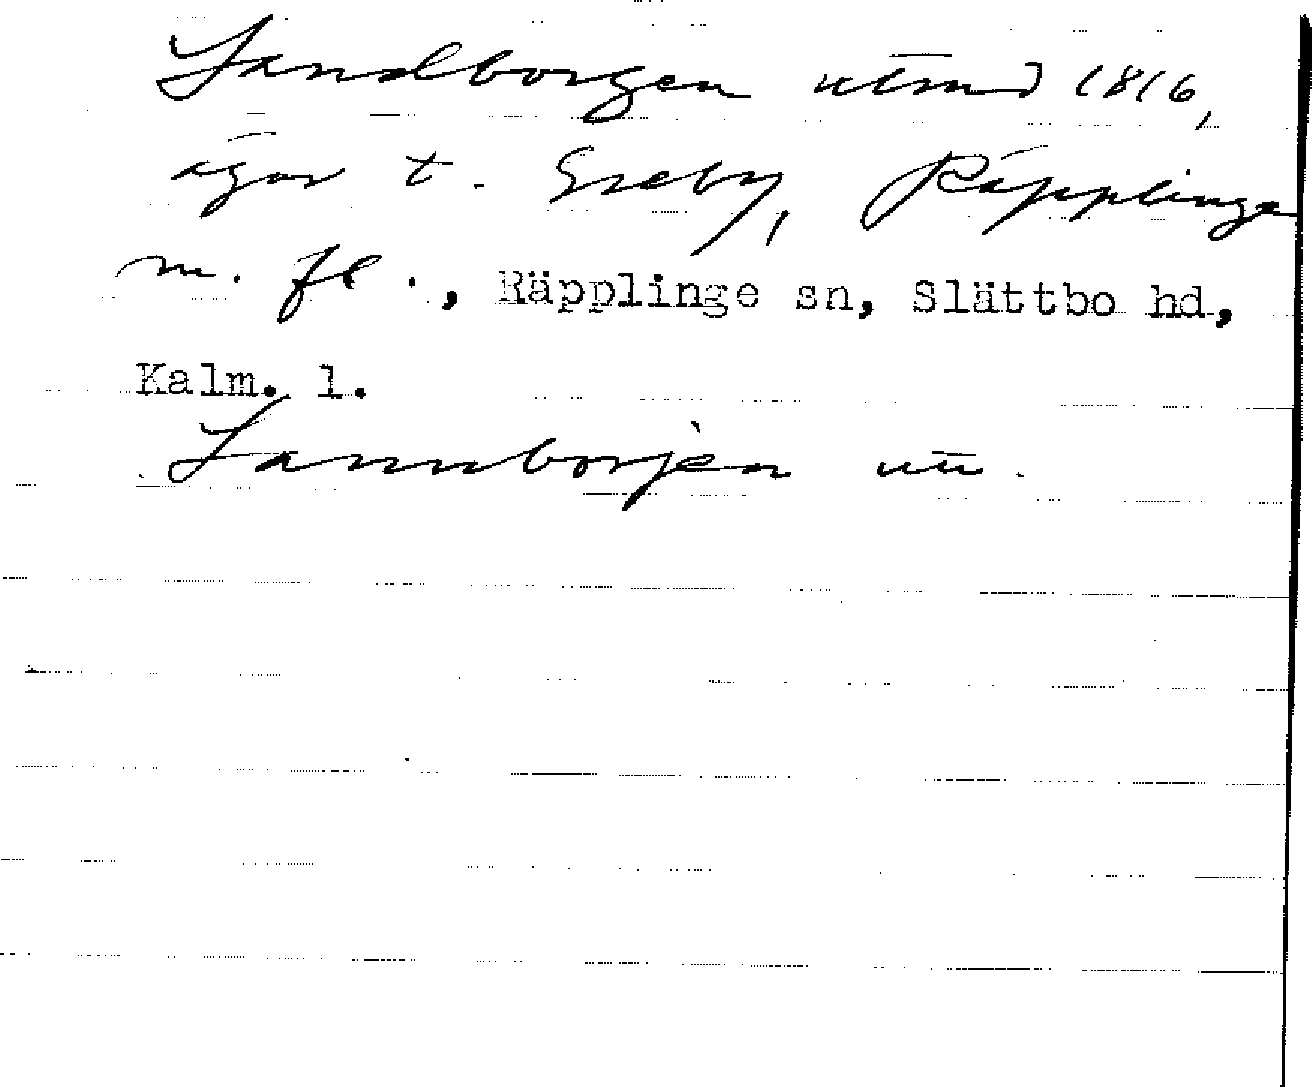 Landborgen utmd 1816,
ägor t. Greby, Räpplinge
m. fl., Räpplinge sn, Slättbo hd,
Kalm. l.
Lannborjèn utt.